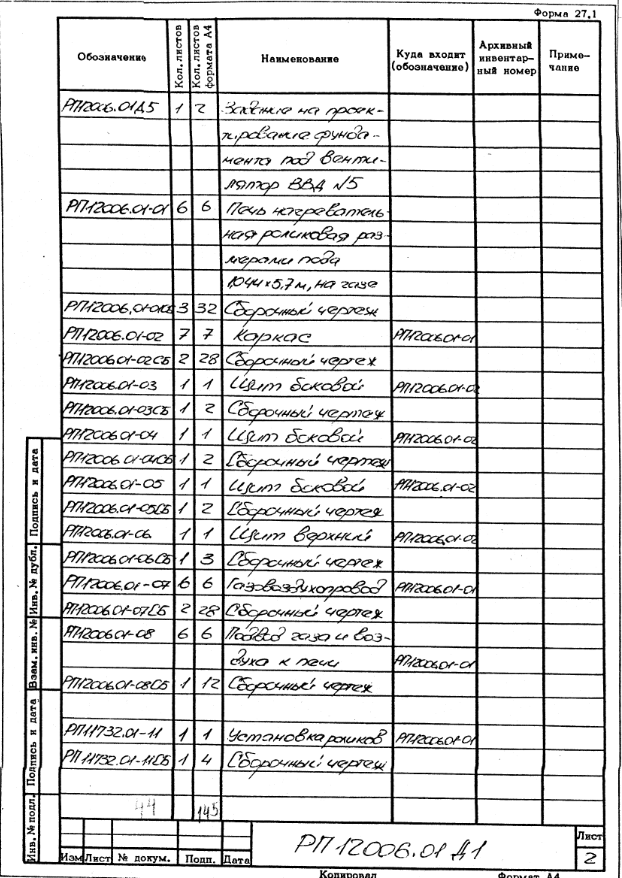 Форма 27.1
Обозначение Кол. листов Кол. листов формата А4 Наименование Куда входит (обозначение) Архивный инвентарный номер Примечание
РП12006.01Д5 1 2 Задание на проек-
тирование фунда-
мента под венти-
лятор ВВД №5
РП-12006.01-01 6 6 Печь нагреватель-
ная роликовая раз-
мерами пода
10,44×5,7м, на газе
РП-12006.01-01СБ 3 32 Сборочный чертеж
РП-12006.01-02 7 7 Каркас РП12006.01-01
РП12006.01-02СБ 2 28 Сборочный чертеж
РП-12006.01-03 1 1 Щит боковой РП12006.01-02
РП12006.01-03СБ 1 2 Сборочный чертеж
РП12006.01-04 1 1 Щит боковой РП12006.01-02
РП12006.01-04СБ 1 2 Сборочный чертеж
РП12006.01-05 1 1 Щит боковой РП12006.01-02
РП12006.01-05СБ 1 2 Сборочный чертеж
РП12006.01-06 1 1 Щит верхний РП12006.01-02
РП12006.01-06СБ 1 3 Сборочный чертеж
РП12006.01-07 6 6 Газовоздухопровод РП12006.01-01
РП12006.01-07СБ 2 28 Сборочный чертеж
РП12006.01-08 6 6 Подвод газа и воз-
духа к печи РП12006.01-01
РП12006.01-08СБ 1 12 Сборочный чертеж
РП11732.01-11 1 1 Установка роликов РП12006.01-01
РП 11732.01-11СБ 1 4 Сборочный чертеж
44 145
Инв. № подл. Подпись и дата Взам. инв. № Инв. № дубл. Подпись и дата
РП-12006.01 Д1
Лист
2
Изм Лист № докум. Подп. Дата
Копировал Формат А4